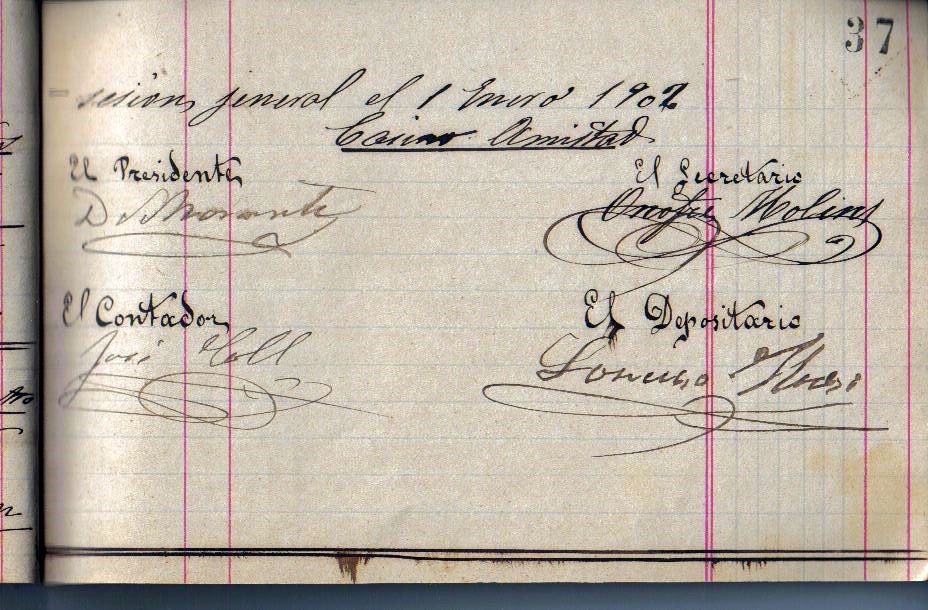 37
sesion general el 1 Enero 1902
Casino Amistad
El Presidente
El Secretario
D. Morante
Onofre Molins
El Contador
El Depositario
José Coll
Lorenzo